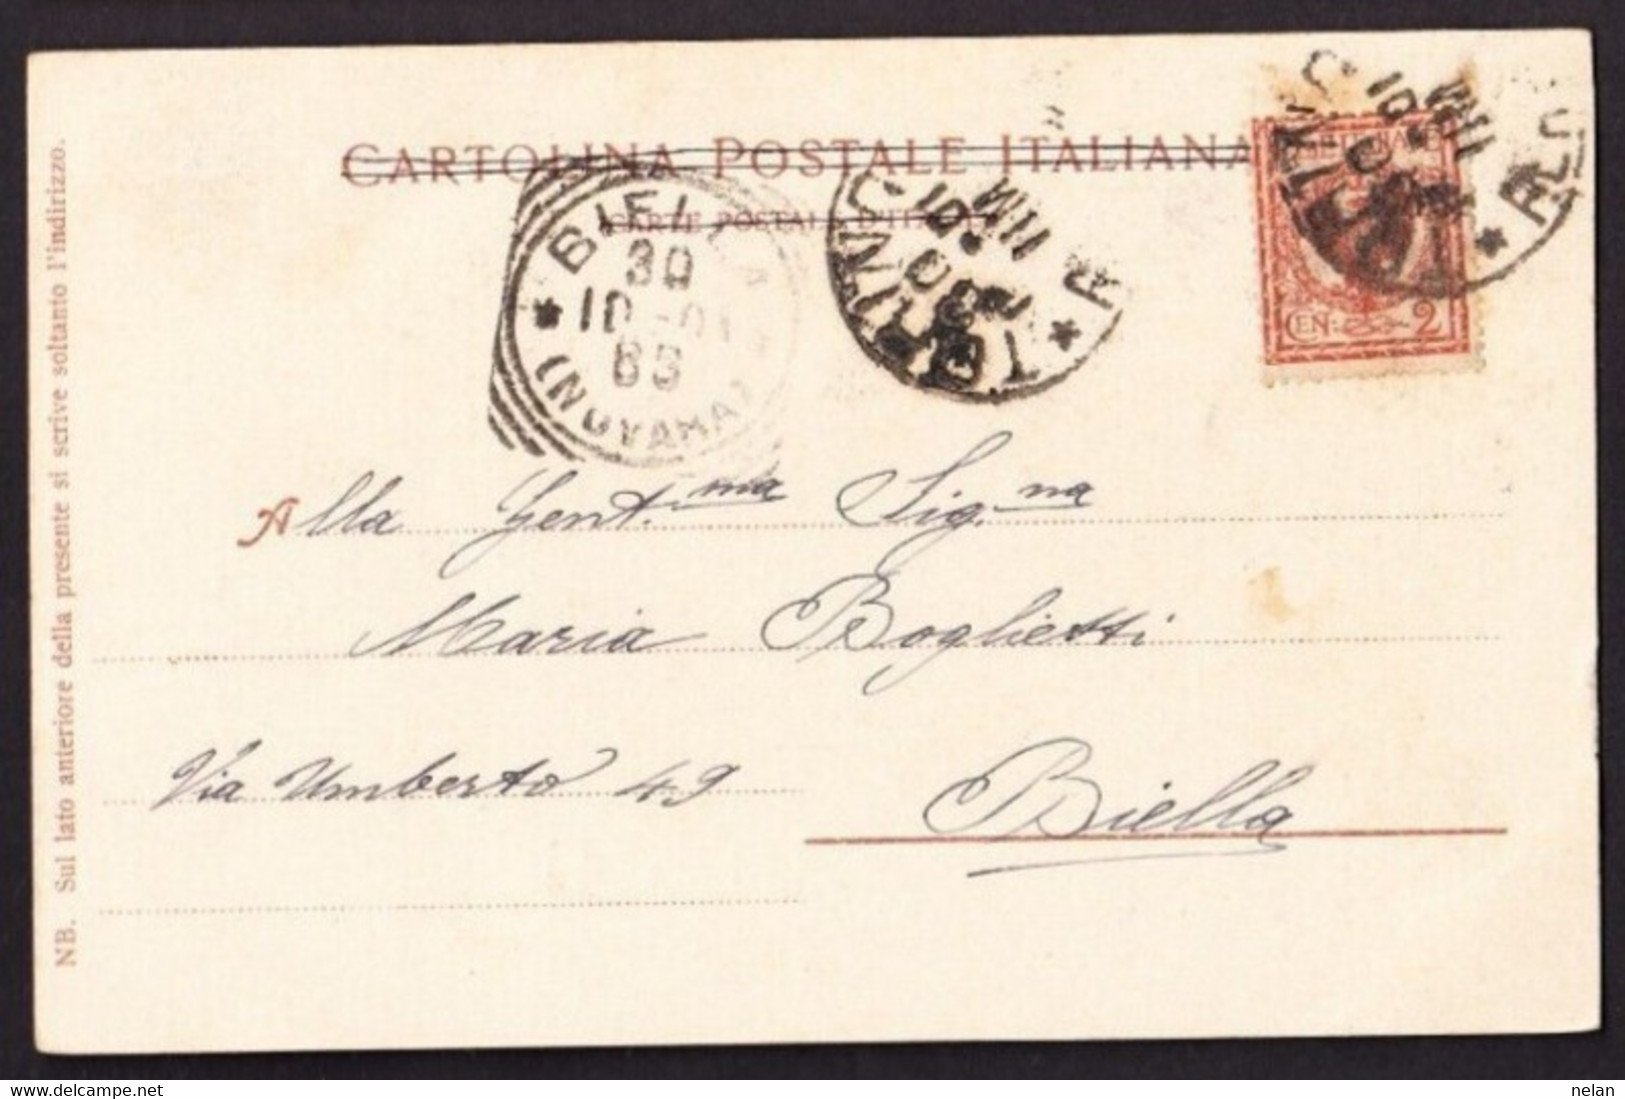 CARTOLINA POSTALE ITALIANA
CARTE POSTALE D'ITALIE
BIELLA
30
10-01
(NOVARA)
TORINO
TORINO
CEN: 2
Alla Gent.ma Sig.na
Maria Boglietti
Via Umberto 49
Biella
NB. Sul lato anteriore della presente si scrive soltanto l'indirizzo.
nelan